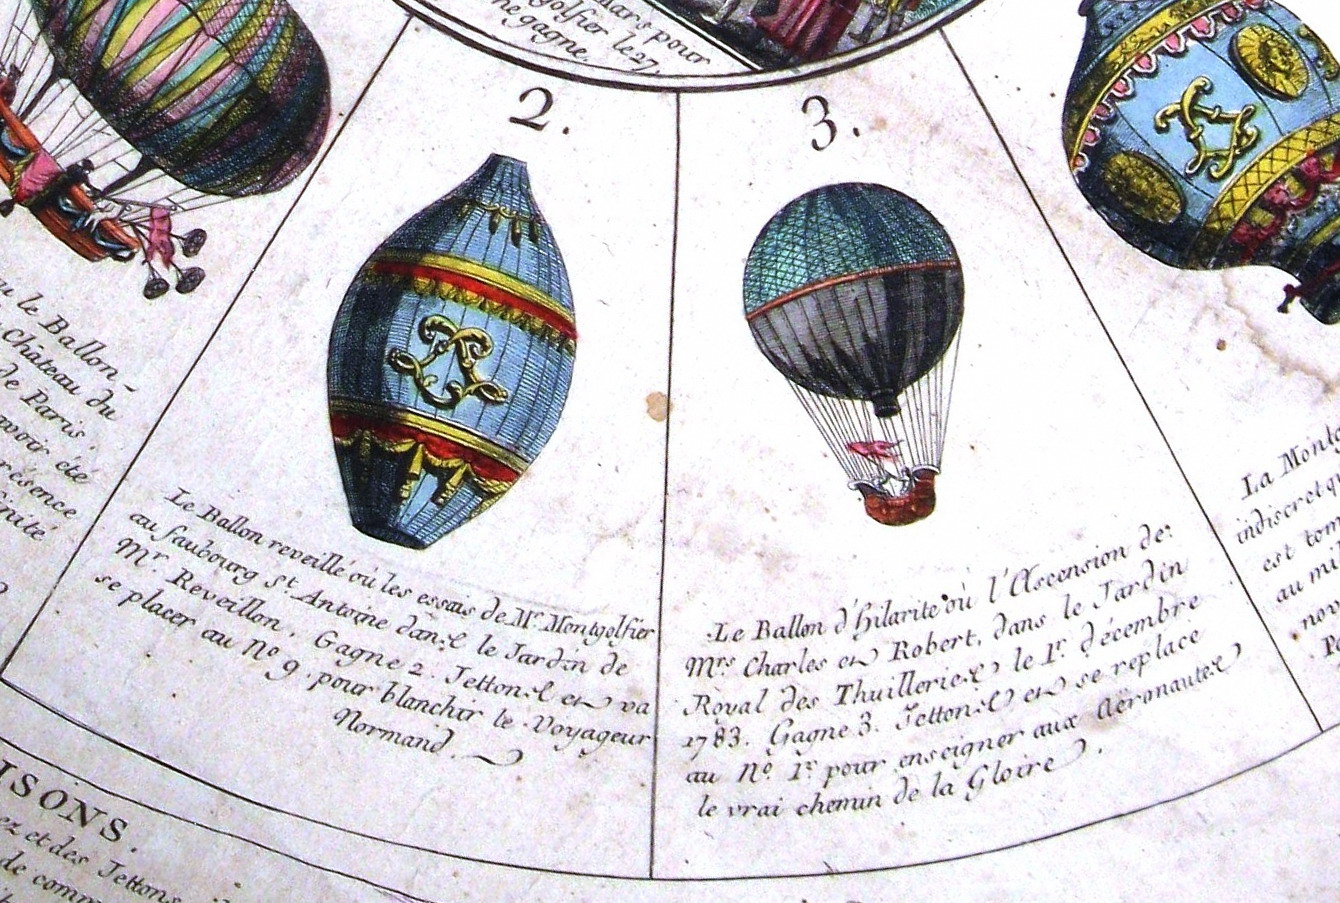 Mars pour
golfier le 27,
ne gagne.
2.
3.
ou le Ballon
Château du
de Paris,
avoir été
résence
inité
Le Ballon reveillé où les essais de Mr. Montgolfier
au faubourg St. Antoine dans le Jardin de
Mr. Reveillon. Gagne 2. Jettons et va
se placer au No. 9. pour blanchir le Voyageur
Normand.
Le Ballon d'hilarité où l'Ascension de
Mrs. Charles et Robert, dans le Jardin
Royal des Thuilleries le 1r. décembre
1783. Gagne 3. Jettons et se replace
au No. 1r. pour enseigner aux Aëronautes
le vrai chemin de la Gloire.
La Montg
indiscret qu
est tom
au mi
nov
ISONS.
ez et des Jettons
de comm